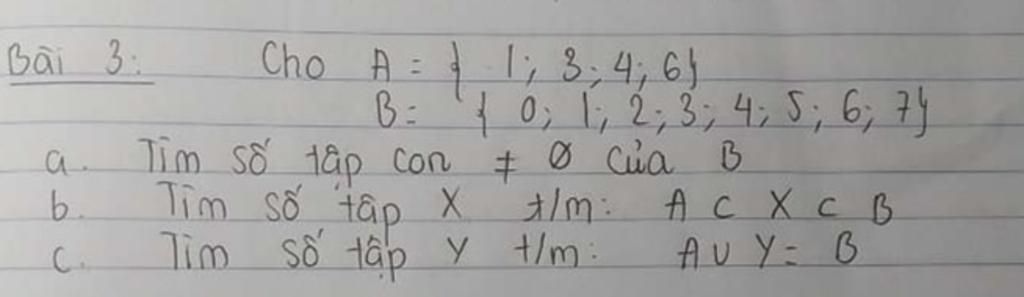 Bài 3: Cho A = { 1; 3; 4; 6}
B = { 0; 1; 2; 3; 4; 5; 6; 7}
a. Tìm số tập con ≠ Ø của B
b. Tìm số tập X t/m: A ⊂ X ⊂ B
c. Tìm số tập Y t/m: A ∪ Y = B